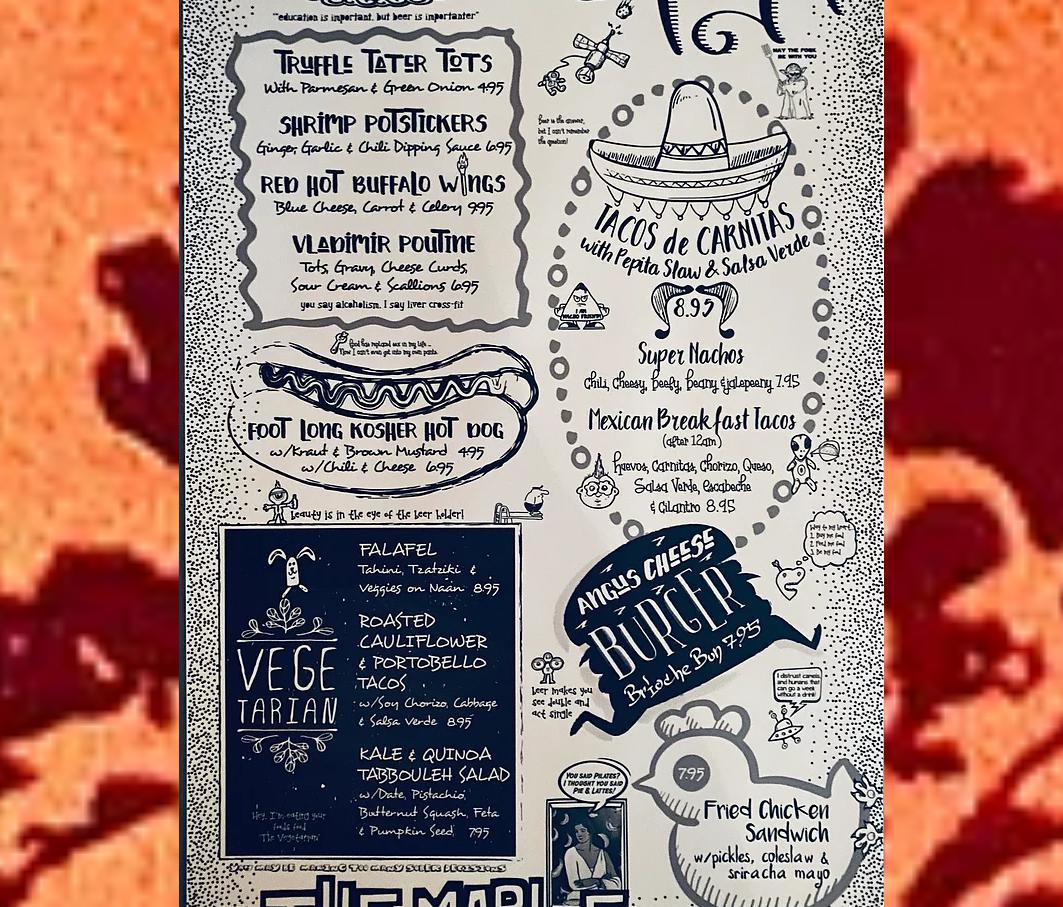 "education is important, but beer is importanter"
TRUFFLE TATER TOTS
With Parmesan & Green Onion 4.95
SHRIMP POTSTICKERS
Ginger, Garlic & Chili Dipping Sauce 6.95
RED HOT BUFFALO WINGS
Blue Cheese, Carrot & Celery 9.95
VLADIMIR POUTINE
Tots, Gravy, Cheese Curds,
Sour Cream & Scallions 6.95
you say alcoholism, I say liver cross-fit
food has replaced sex in my life...
Now I can't even get into my own pants.
FOOT LONG KOSHER HOT DOG
w/Kraut & Brown Mustard 4.95
w/Chili & Cheese 6.95
beauty is in the eye of the beer holder!
VEGE
TARIAN
Hey, I'm eating your
food's food
"The Vegetarian"
FALAFEL
Tahini, Tzatziki &
Veggies on Naan 8.95
ROASTED
CAULIFLOWER
& PORTOBELLO
TACOS
w/Soy Chorizo, Cabbage
& Salsa Verde 8.95
KALE & QUINOA
TABBOULEH SALAD
w/Date, Pistachio,
Butternut Squash, Feta
& Pumpkin Seed 7.95
MAY THE FORK
BE WITH YOU
Beer is the answer,
but I can't remember
the question!
TACOS de CARNITAS
with Pepita Slaw & Salsa Verde
8.95
I AM
NACHO FRIEND!
Super Nachos
Chili, cheesy, beefy, beany & jalapeeny 7.95
Mexican Breakfast Tacos
(after 12am)
huevos, Carnitas, Chorizo, Queso,
Salsa Verde, escabeche
& Cilantro 8.95
Way to my heart
1. Buy me food
2. Feed me food
3. Be my food
ANGUS CHEESE
BURGER
Brioche Bun 7.95
beer makes you
see double and
act single
I distrust camels,
and humans that
can go a week
without a drink
YOU SAID PILATES?
I THOUGHT YOU SAID
PIE & LATTES!
7.95
Fried Chicken
Sandwich
w/pickles, coleslaw &
sriracha mayo